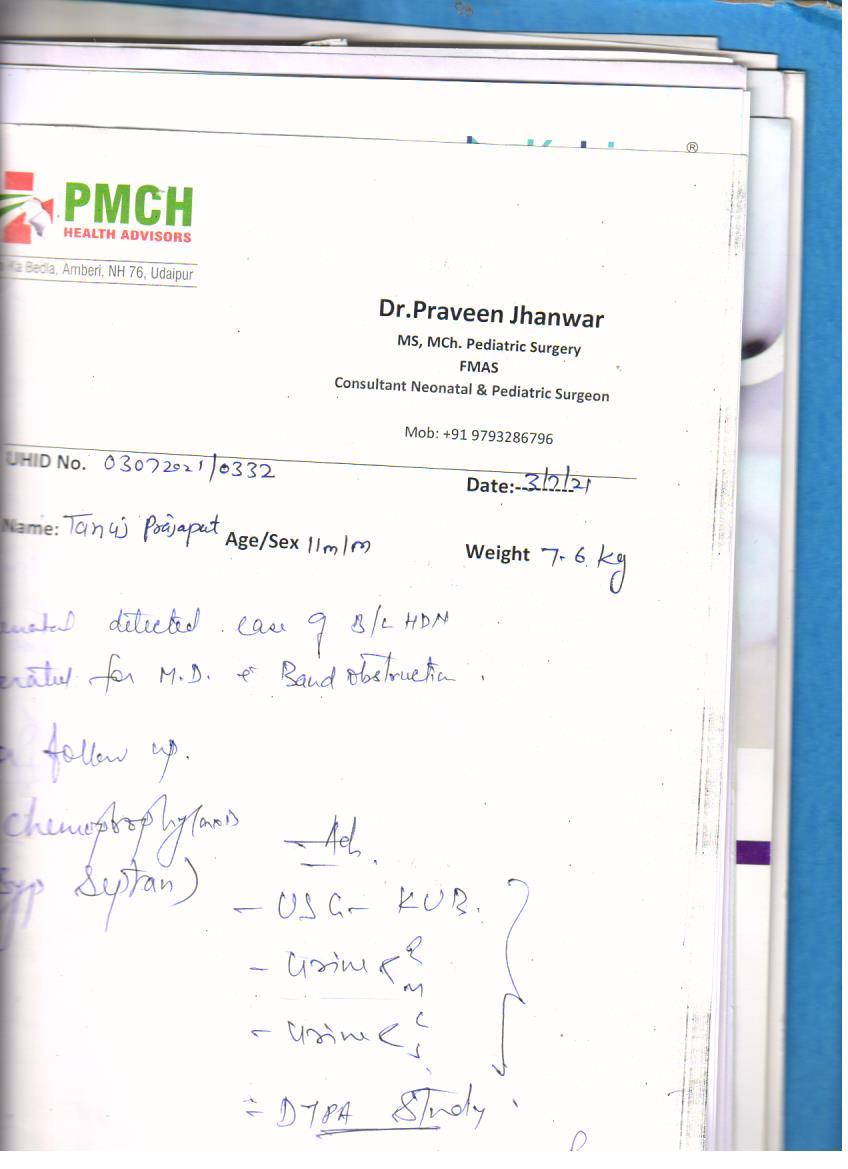 ®
PMCH
HEALTH ADVISORS
Ka Bedla, Amberi, NH 76, Udaipur
Dr.Praveen Jhanwar
MS, MCh. Pediatric Surgery
FMAS
Consultant Neonatal & Pediatric Surgeon
Mob: +91 9793286796
UHID No. 03072021/0332
Date:- 3/7/21
Name: Tanuj Prajapat Age/Sex 11m/m Weight 7.6 kg
detected case of B/L HDN
for M.D. & Band obstruction.
follow up.
chemoprophylaxis
Septran)
Adv.
- USG- KUB.
- Urine < R M
- Urine < C S
- DTPA Study.